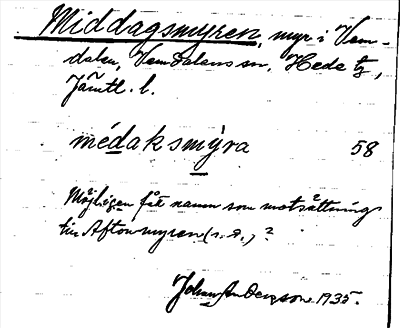 Middagsmyren, myr i Vem-
dalen, Vemdalens sn, Hede tg,
Jämtl. l.
médaksmyra 58
Möjligen fått namn som motsättning
till Aftonmyren (s. d.) ?
Johan Anderzson 1935.